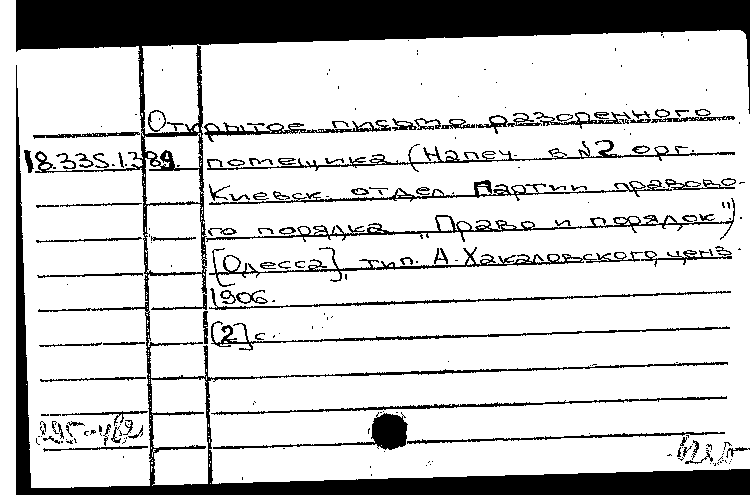 Открытое письмо разоренного
18.335.1.389 помещика (Напеч. в №2 орг.
Киевск. отдел. Партии правово-
го порядка „Право и порядок").
[Одесса], тип. А. Хакаловского, ценз.
1906.
[2] с.
295-482